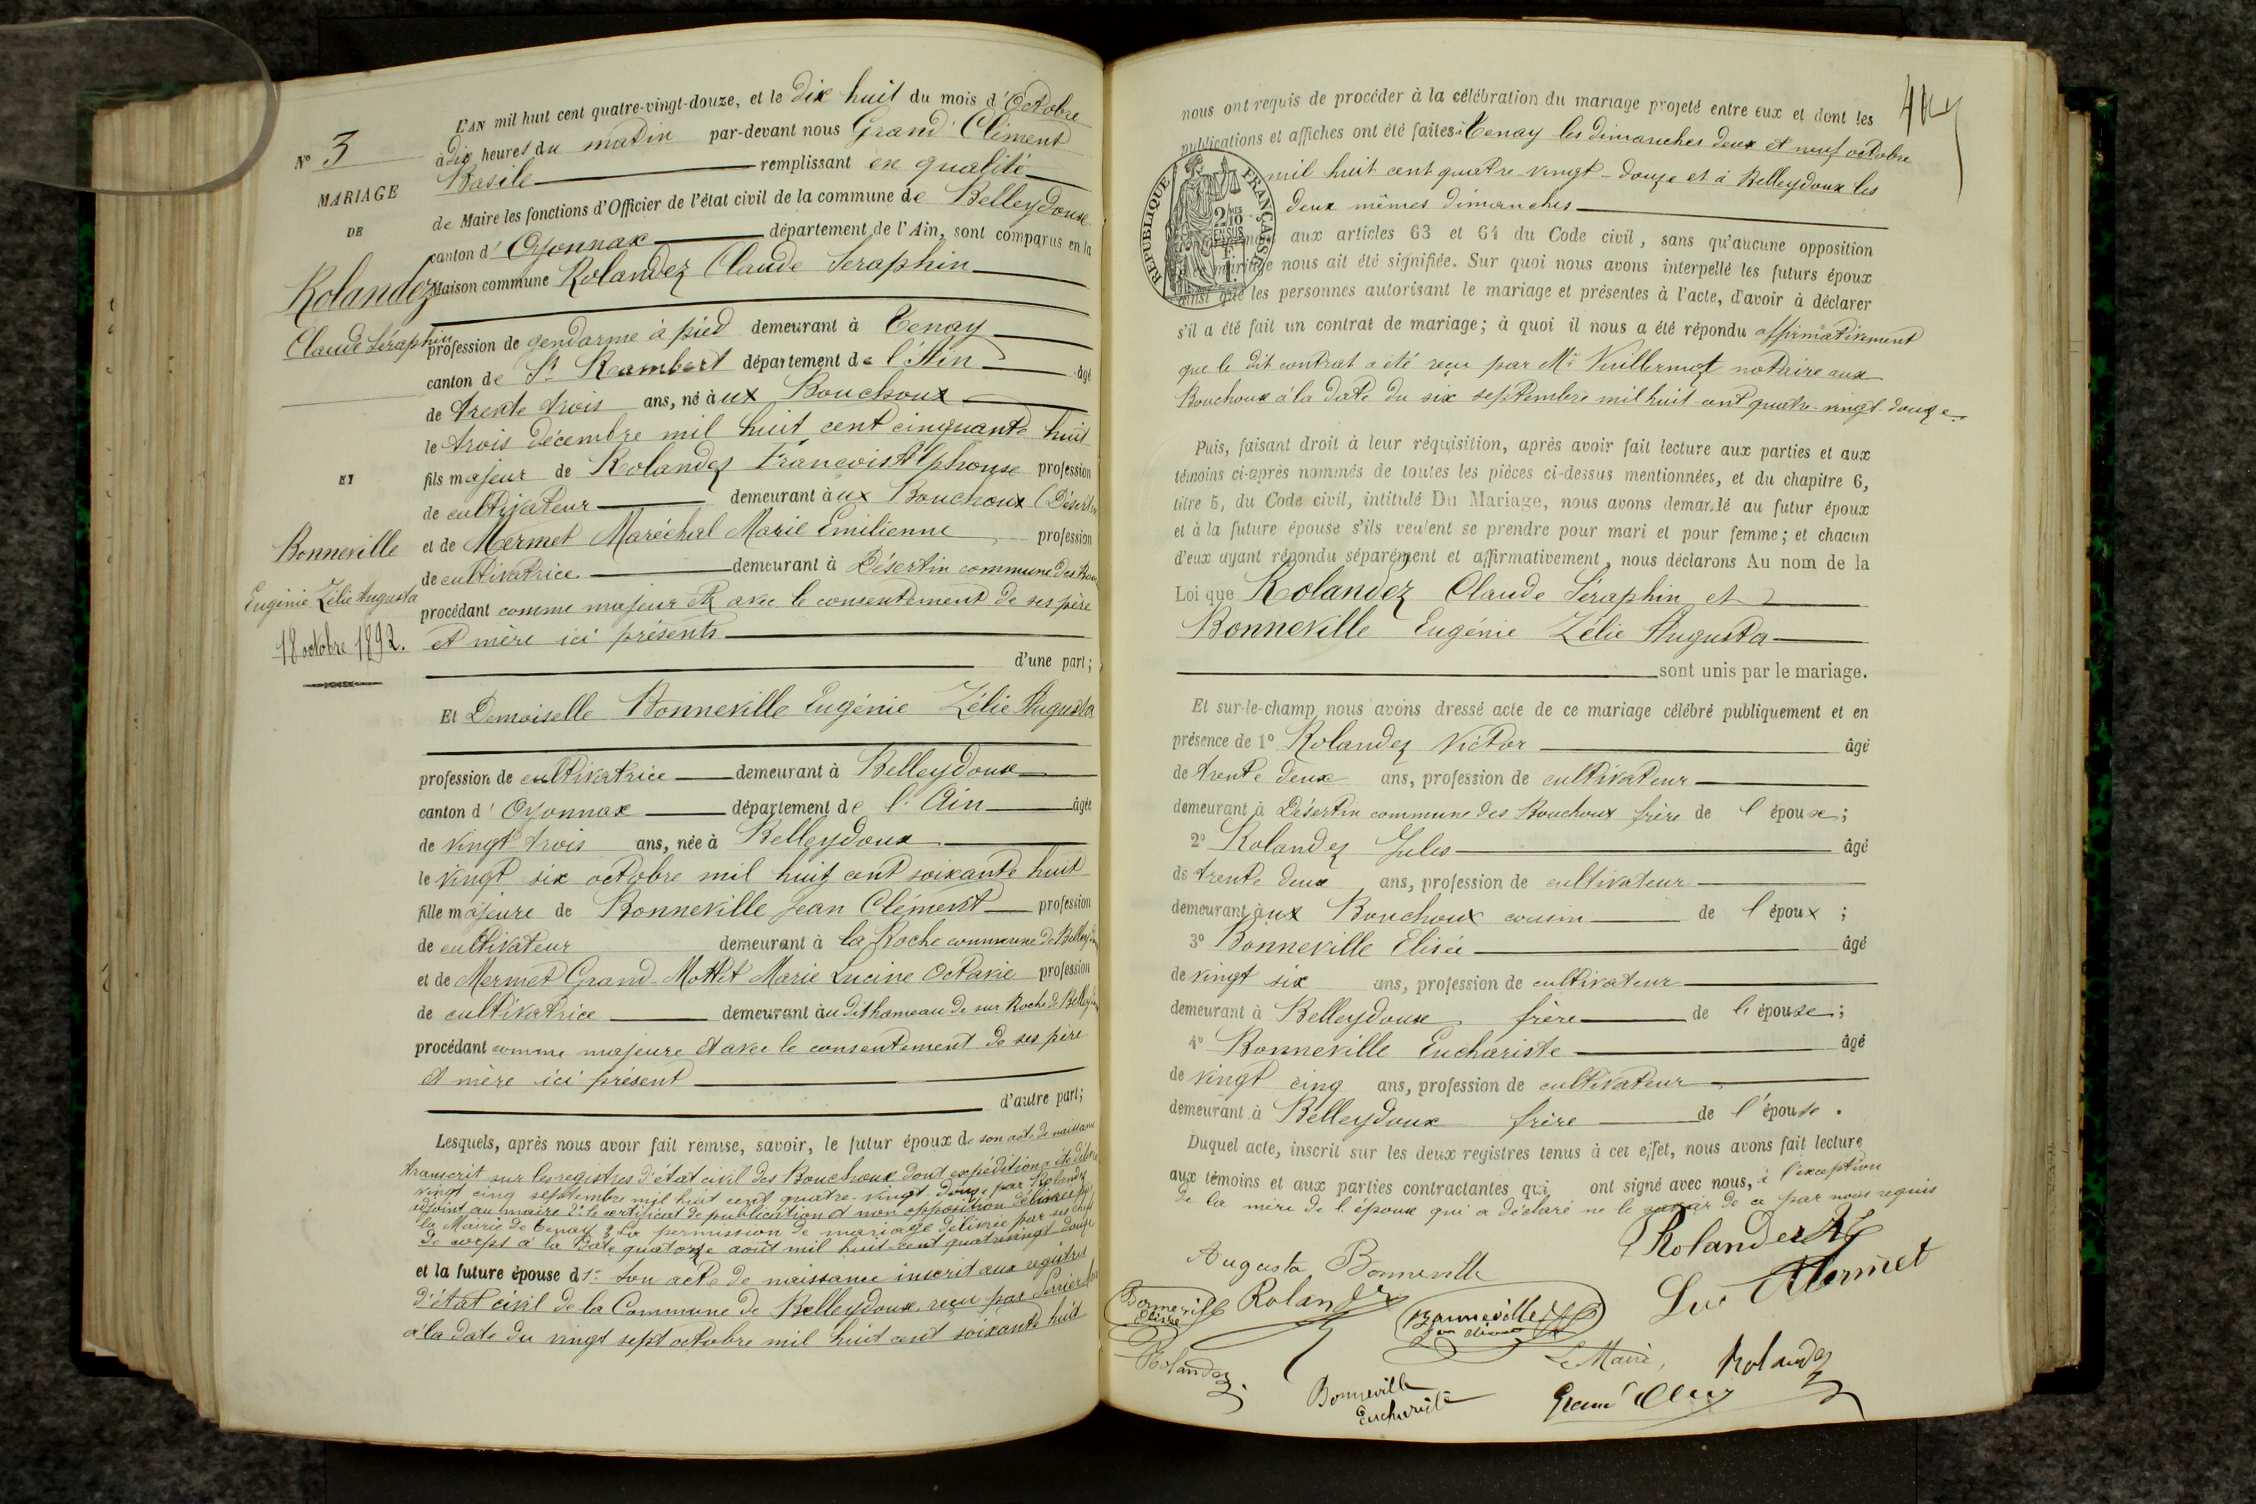 N° 3
MARIAGE
DE
Rolandez
Claude Séraphin
ET
Bonneville
Eugénie Zélie Augusta
18 octobre 1892.
L'AN mil huit cent quatre-vingt-douze, et le dix huit du mois d'Octobre
à dix heures du matin par-devant nous Grand Clément
Basile remplissant en qualité
de Maire les fonctions d'Officier de l'état civil de la commune de Belleydoux
canton d'Oyonnax département de l'Ain, sont comparus en la
Maison commune Rolandez Claude Seraphin
profession de gendarme à pied demeurant à Tenay
canton de St Rambert département de l'Ain âgé
de trente trois ans, né à ux Bouchoux
le trois décembre mil huit cent cinquante huit
fils majeur de Rolandez François Alphonse profession
de cultivateur demeurant à ux Bouchoux (Désertin
et de Mermet Maréchal Marie Emilienne profession
de cultivatrice demeurant à Désertin commune des Bou
procédant comme majeur et avec le consentement de ses père
et mère ici présents
d'une part;
Et Demoiselle Bonneville Eugénie Zélie Augusta
profession de cultivatrice demeurant à Belleydoux
canton d'Oyonnax département de l'Ain âgée
de vingt trois ans, née à Belleydoux
le vingt six octobre mil huit cent soixante huit
fille majeure de Bonneville Jean Clément profession
de cultivateur demeurant à la Roche commune de Belleydoux
et de Mermet Grand-Mottet Marie Lucine Octavie profession
de cultivatrice demeurant àu dit hameau de sur Roche de Belleydoux
procédant comme majeure et avec le consentement de ses père
et mère ici présent
d'autre part;
Lesquels, après nous avoir fait remise, savoir, le futur époux de son acte de naissance
transcrit sur les registres d'état civil des Bouchoux dont expédition a été délivrée
vingt cinq septembre mil huit cent quatre-vingt douze par Rolandez
adjoint au maire 2° le certificat de publication et non opposition délivrée par
la Mairie de Tenay 3° La permission de mariage délivrée par ses chefs
de corps à la date quatorze août mil huit-cent quatre vingt douze
et la future épouse d 1° Son acte de naissance inscrit aux registres
d'état civil de la Commune de Belleydoux, reçu par
à la date du vingt sept octobre mil huit cent soixante huit
nous ont requis de procéder à la célébration du mariage projeté entre eux et dont les
publications et affiches ont été faites à Tenay les dimanches deux et neuf octobre
mil huit cent quatre-vingt-douze et à Belleydoux les
deux mêmes dimanches
RÉPUBLIQUE FRANÇAISE
2/10 EN SUS
1 F.
aux articles 63 et 64 du Code civil, sans qu'aucune opposition
mariage nous ait été signifiée. Sur quoi nous avons interpellé les futurs époux
ainsi que les personnes autorisant le mariage et présentes à l'acte, d'avoir à déclarer
s'il a été fait un contrat de mariage; à quoi il nous a été répondu affirmativement
que le dit contrat a été reçu par Me Vuillermoz notaire aux
Bouchoux à la date du six septembre mil huit-cent quatre-vingt-douze.
Puis, faisant droit à leur réquisition, après avoir fait lecture aux parties et aux
témoins ci-après nommés de toutes les pièces ci-dessus mentionnées, et du chapitre 6,
titre 5, du Code civil, intitulé Du Mariage, nous avons demandé au futur époux
et à la future épouse s'ils veulent se prendre pour mari et pour femme; et chacun
d'eux ayant répondu séparément et affirmativement, nous déclarons Au nom de la
Loi que Rolandez Claude Séraphin et
Bonneville Eugénie Zélie Augusta
sont unis par le mariage.
Et sur-le-champ nous avons dressé acte de ce mariage célébré publiquement et en
présence de 1° Rolandez Victor âgé
de trente deux ans, profession de cultivateur
demeurant à Désertin commune des Bouchoux frère de l'époux;
2° Rolandez Jules âgé
de trente deux ans, profession de cultivateur
demeurant àux Bouchoux cousin de l'époux;
3° Bonneville Elisée âgé
de vingt six ans, profession de cultivateur
demeurant à Belleydoux frère de l'épouse;
4° Bonneville Euchariste âgé
de vingt cinq ans, profession de cultivateur
demeurant à Belleydoux frère de l'épouse.
Duquel acte, inscrit sur les deux registres tenus à cet effet, nous avons fait lecture
aux témoins et aux parties contractantes qui ont signé avec nous, à l'exception
de la mère de l'époux qui a déclaré ne le savoir de ce par nous requis
Rolandez
Augusta Bonneville
Luc Mermet
Bonneville Elisée
Rolandez
Bonneville Jean Clément
Rolandez
Le Maire,
Rolandez
Bonneville Euchariste
Grand Clém